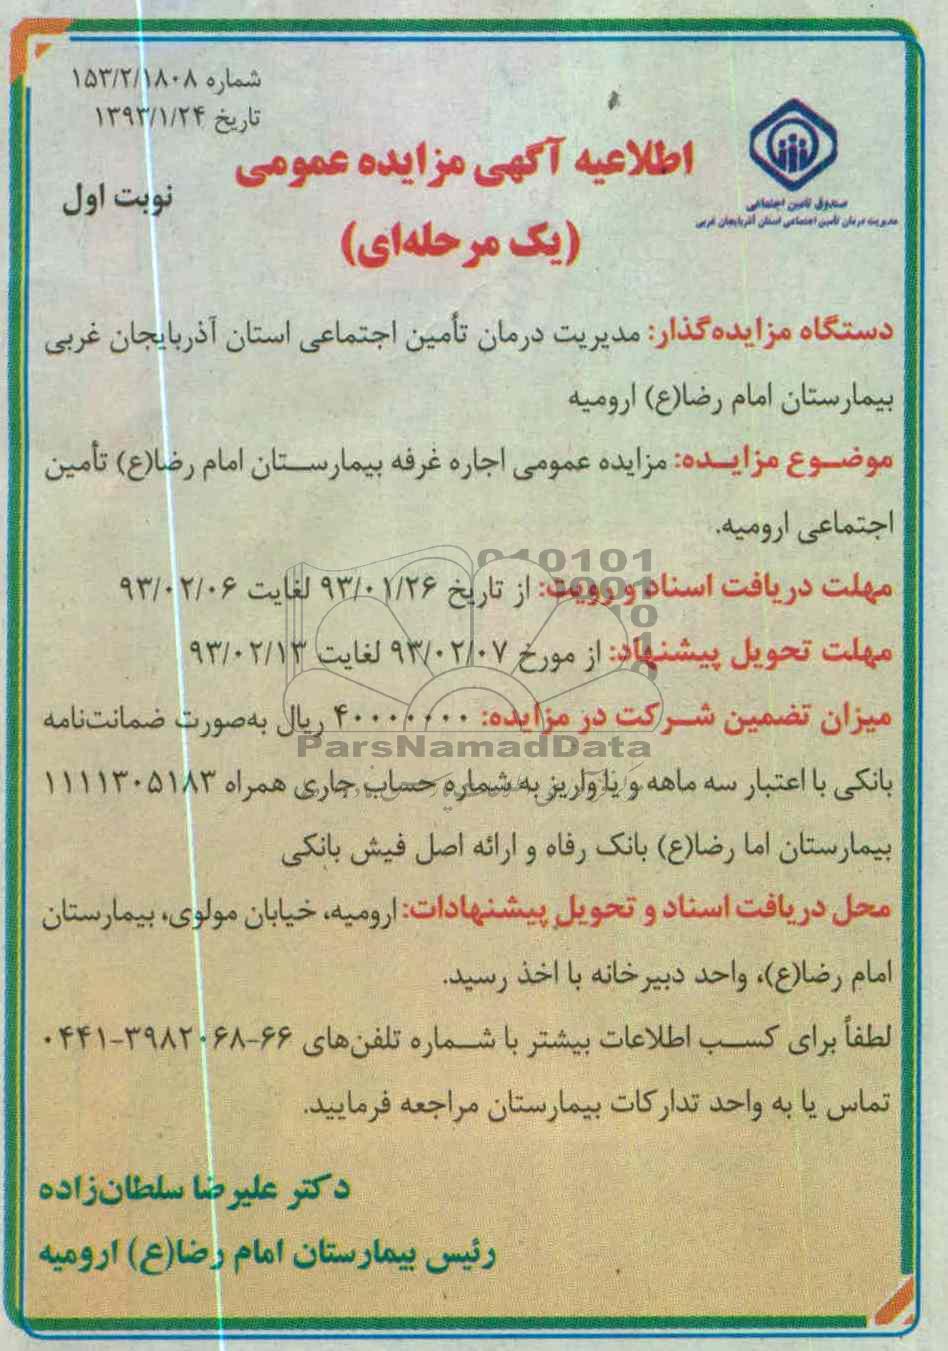 شماره ۱۵۳/۲/۱۸۰۸
تاریخ ۱۳۹۳/۱/۲۴
صندوق تأمین اجتماعی
مدیریت درمان تأمین اجتماعی استان آذربایجان غربی
اطلاعیه آگهی مزایده عمومی
نوبت اول
(یک مرحله‌ای)
دستگاه مزایده‌گذار: مدیریت درمان تأمین اجتماعی استان آذربایجان غربی
بیمارستان امام رضا(ع) ارومیه
موضوع مزایده: مزایده عمومی اجاره غرفه بیمارستان امام رضا(ع) تأمین
اجتماعی ارومیه.
مهلت دریافت اسناد و رویت: از تاریخ ۹۳/۰۱/۲۶ لغایت ۹۳/۰۲/۰۶
مهلت تحویل پیشنهاد: از مورخ ۹۳/۰۲/۰۷ لغایت ۹۳/۰۲/۱۳
میزان تضمین شرکت در مزایده: ۴۰۰۰۰۰۰۰ ریال به‌صورت ضمانت‌نامه
ParsNamadData
بانکی با اعتبار سه ماهه و یا واریز به شماره حساب جاری همراه ۱۱۱۱۳۰۵۱۸۳
بیمارستان اما رضا(ع) بانک رفاه و ارائه اصل فیش بانکی
محل دریافت اسناد و تحویل پیشنهادات: ارومیه، خیابان مولوی، بیمارستان
امام رضا(ع)، واحد دبیرخانه با اخذ رسید.
لطفاً برای کسب اطلاعات بیشتر با شماره تلفن‌های ۶۶-۳۹۸۲۰۶۸-۰۴۴۱
تماس یا به واحد تدارکات بیمارستان مراجعه فرمایید.
دکتر علیرضا سلطان‌زاده
رئیس بیمارستان امام رضا(ع) ارومیه